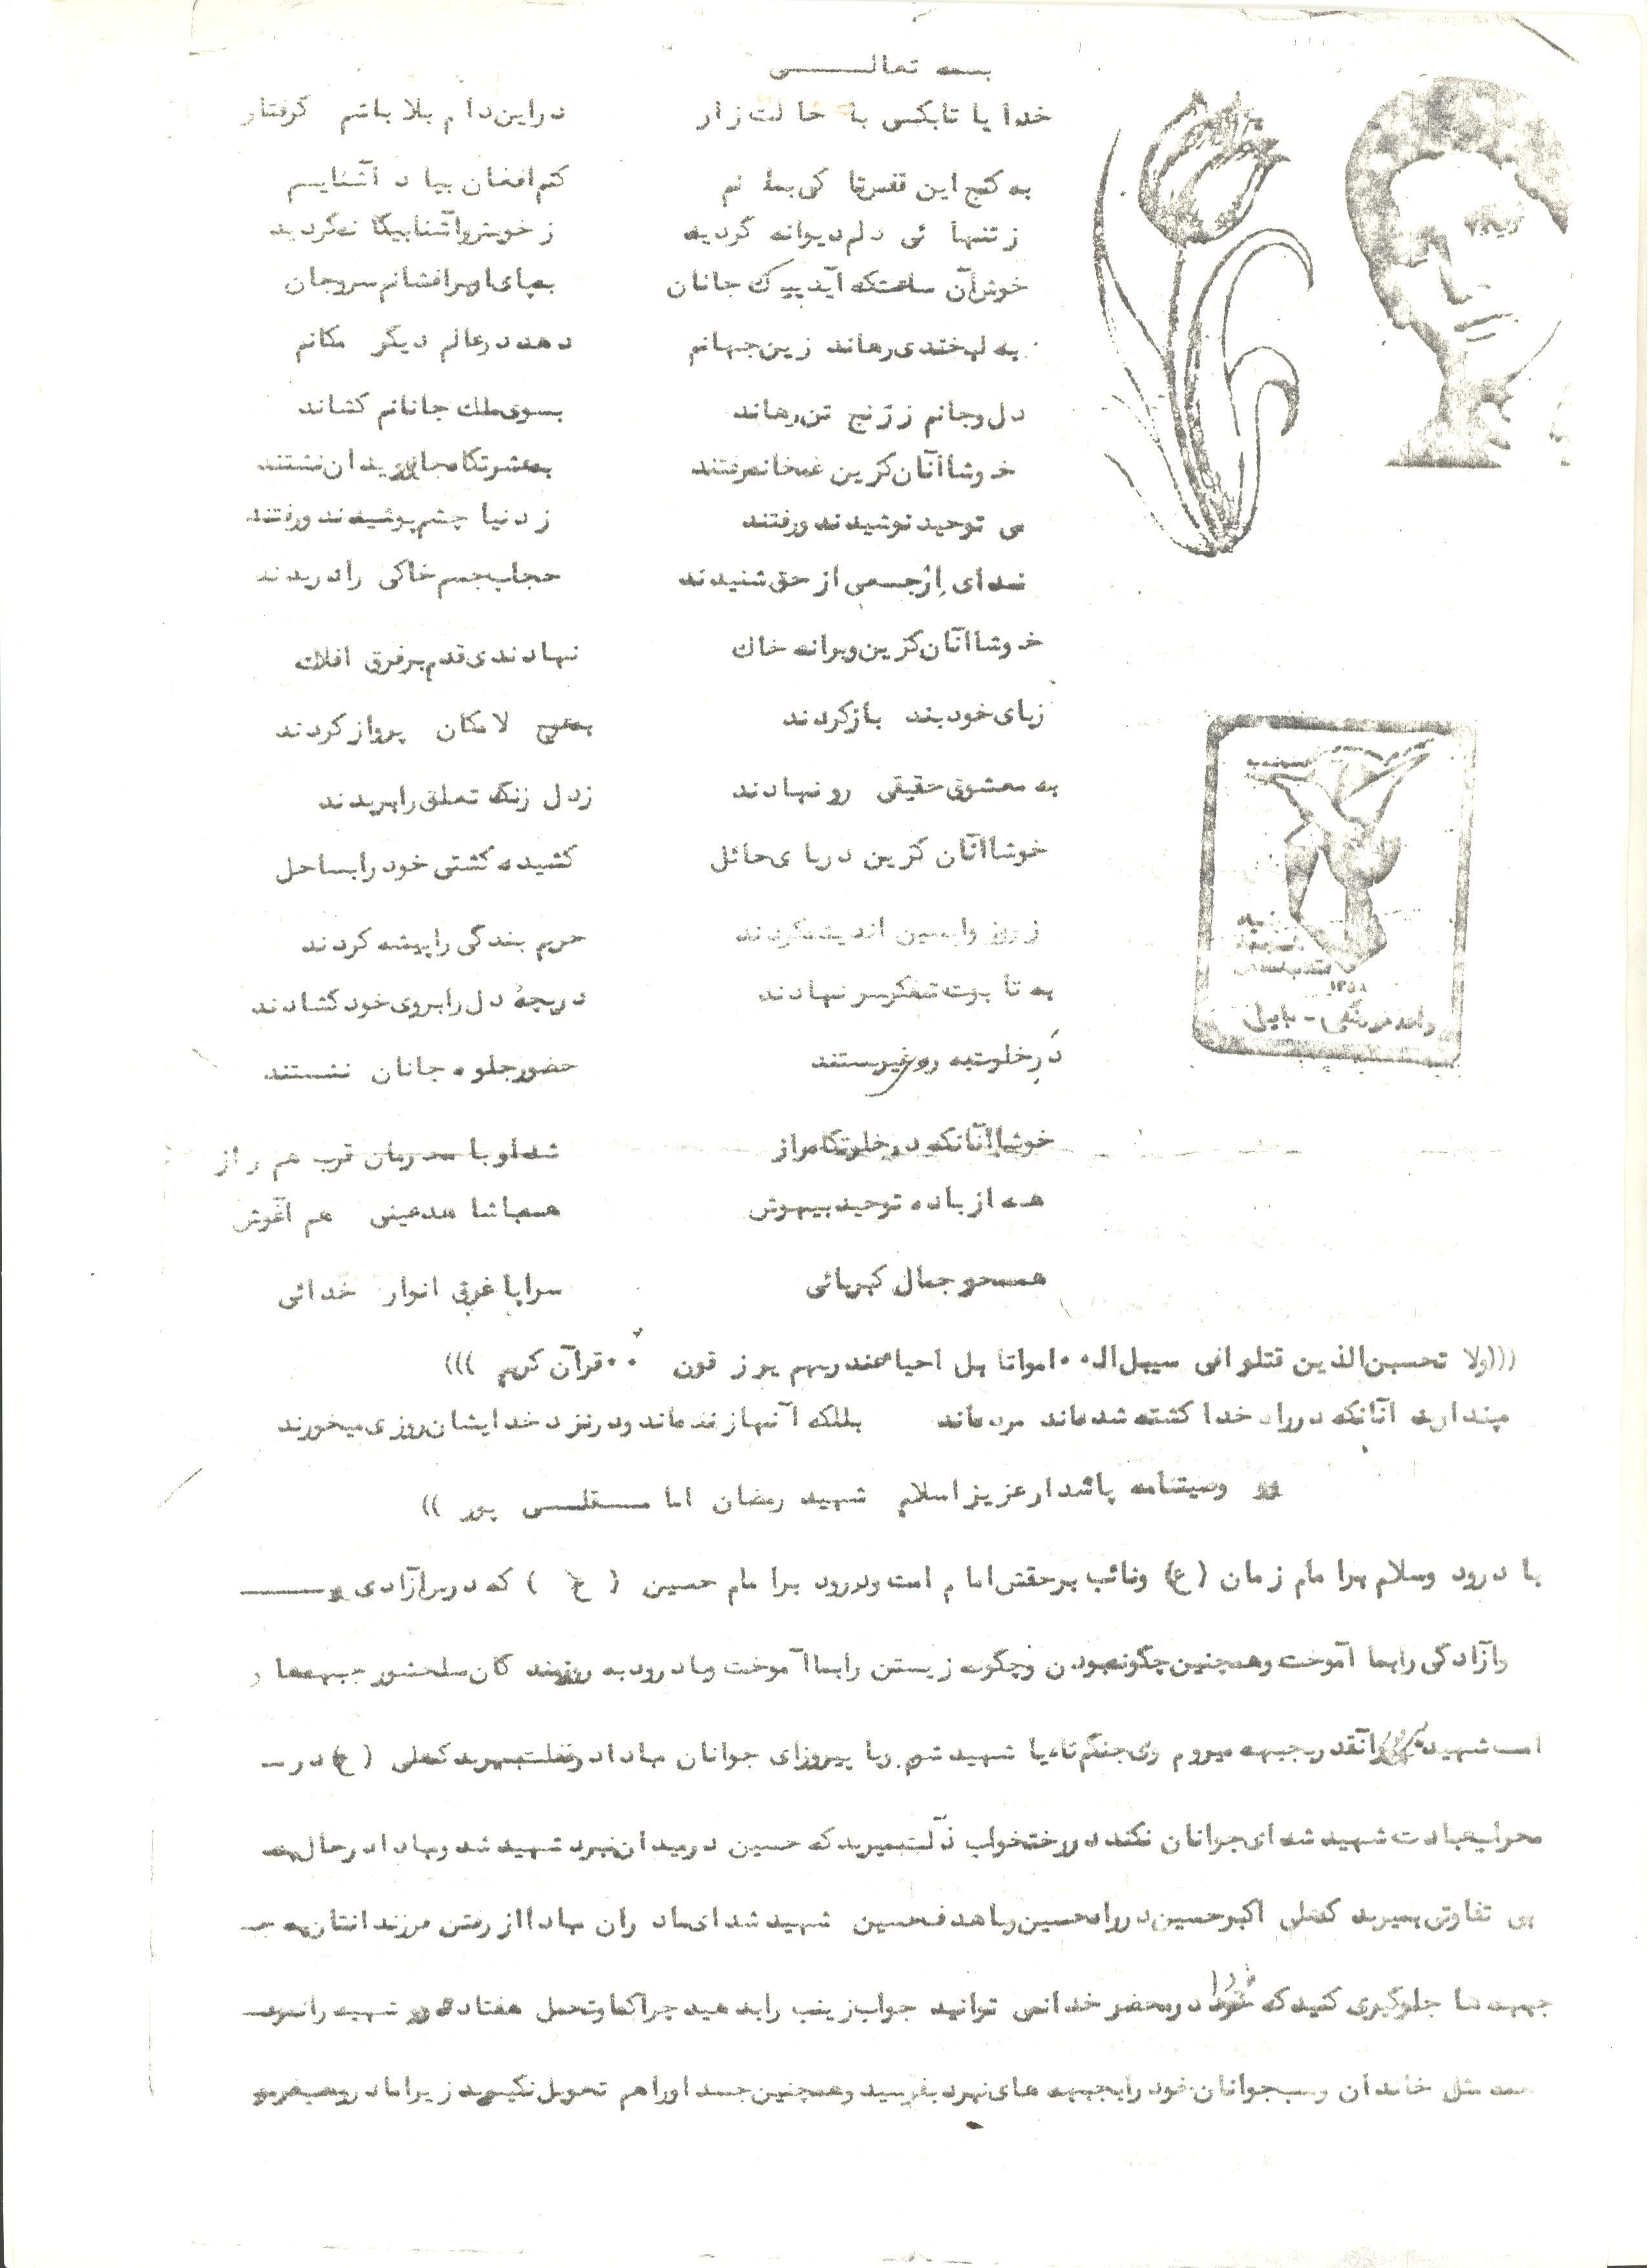 بسمه تعالی
خدایا تابکی با حالت زار دراین دام بلا باشم گرفتار
به کنج این قفس تا کی بمانم کنم افغان بیاد آشنایم
ز تنهائی دلم دیوانه گردیده ز خویش وآشنا بیگانه گردید
خوش آن ساعتکه آید پیک جانان به پای او برافشانم سروجان
به لبخندی رهاند زین جهانم دهد درعالم دیگر مکانم
دل وجانم ز رنج تن رهاند بسوی ملک جانانم کشاند
خوشاآنان کزین غمخانه رفتند به عشرتگاه جاویدان نشتند
می توحید نوشیدند ورفتند ز دنیا چشم پوشیدند ورفتند
ندای ارجعی از حق شنیدند حجاب جسم خاکی رادریدند
خوشاآنان کزین ویرانه خاک نهادندی قدم برفرق افلاک
زپای خودبند بازکردند لامکان پروازکردند
به معشوق حقیقی رو نهادند زدل زنگ تعلق رابریدند
خوشاآنان کزین دریای حائل کشیده کشتی خود رابساحل
ز روز واپسین اندیشه کردند حریم بندگی راپیشه کردند
به تابوت تفکر سر نهادند دریچهٔ دل رابروی خود کشادند
درخلوت به روی غیربستند حضور جلوه جانان نشستند
خوشاآنانکه درخلوتگاه راز شداو با قرب هم راز
همه از باده توحید بیهوش همه باشاهد عینی هم آغوش
همه محو جمال کبریائی سراپا غرق انوار خدائی
(((ولا تحسبن الذین قتلو افی سبیل الـ۰۰ امواتا بل احیا عندربهم یرز قون ۰۰ قرآن کریم )))
مپندارید آنانکه درراه خدا کشته شده‌اند مرده‌اند بللکه آنهازنده‌اند ودرنزد خدایشان روزی میخورند
وصیتنامه پاسدار عزیز اسلام شهید رمضان اما مـــقلـــی پور ))
با درود وسلام برا مام زمان (ع) ونائب برحقش اما م امت ودرود برا مام حسین ( ع ) که دربرآزادی
وآزادگی رابما آموخت وهمچنین چگونه بودن وچگونه زیستن رابما آموخت وبادرود به رزمندگان سلحشور جبهه‌ها و
امت شهید آنقدر به جبهه میروم ومی جنگم تا یا شهید شوم ویا پیروزای جوانان مبادا درغفلت بمیرید که علی (ع) در
محراب عبادت شهید شد ای جوانان نکند دررختخواب ذلّت بمیرید که حسین درمیدان نبرد شهید شد ومبادا درحال
بی تفاوتی بمیرید که علی اکبرحسین درراه حسین وباهدف حسین شهید شد ای مادران مبادا از رفتن فرزندانتان به
جبهه‌ها جلوگیری کنید که فردا درمحضر خدا نمی توانید جواب زینب رابدهید چرا که اوتحمل هفتاد دو شهید رانمود
همه مثل خاندان وهب جوانان خود رابجبهه های نبرد بفرستید وهمچنین جسد اوراهم تحویل نگیرید زیرا مادر وهب فرمود
۱۳۵۸
واحد فرهنگی - بابل